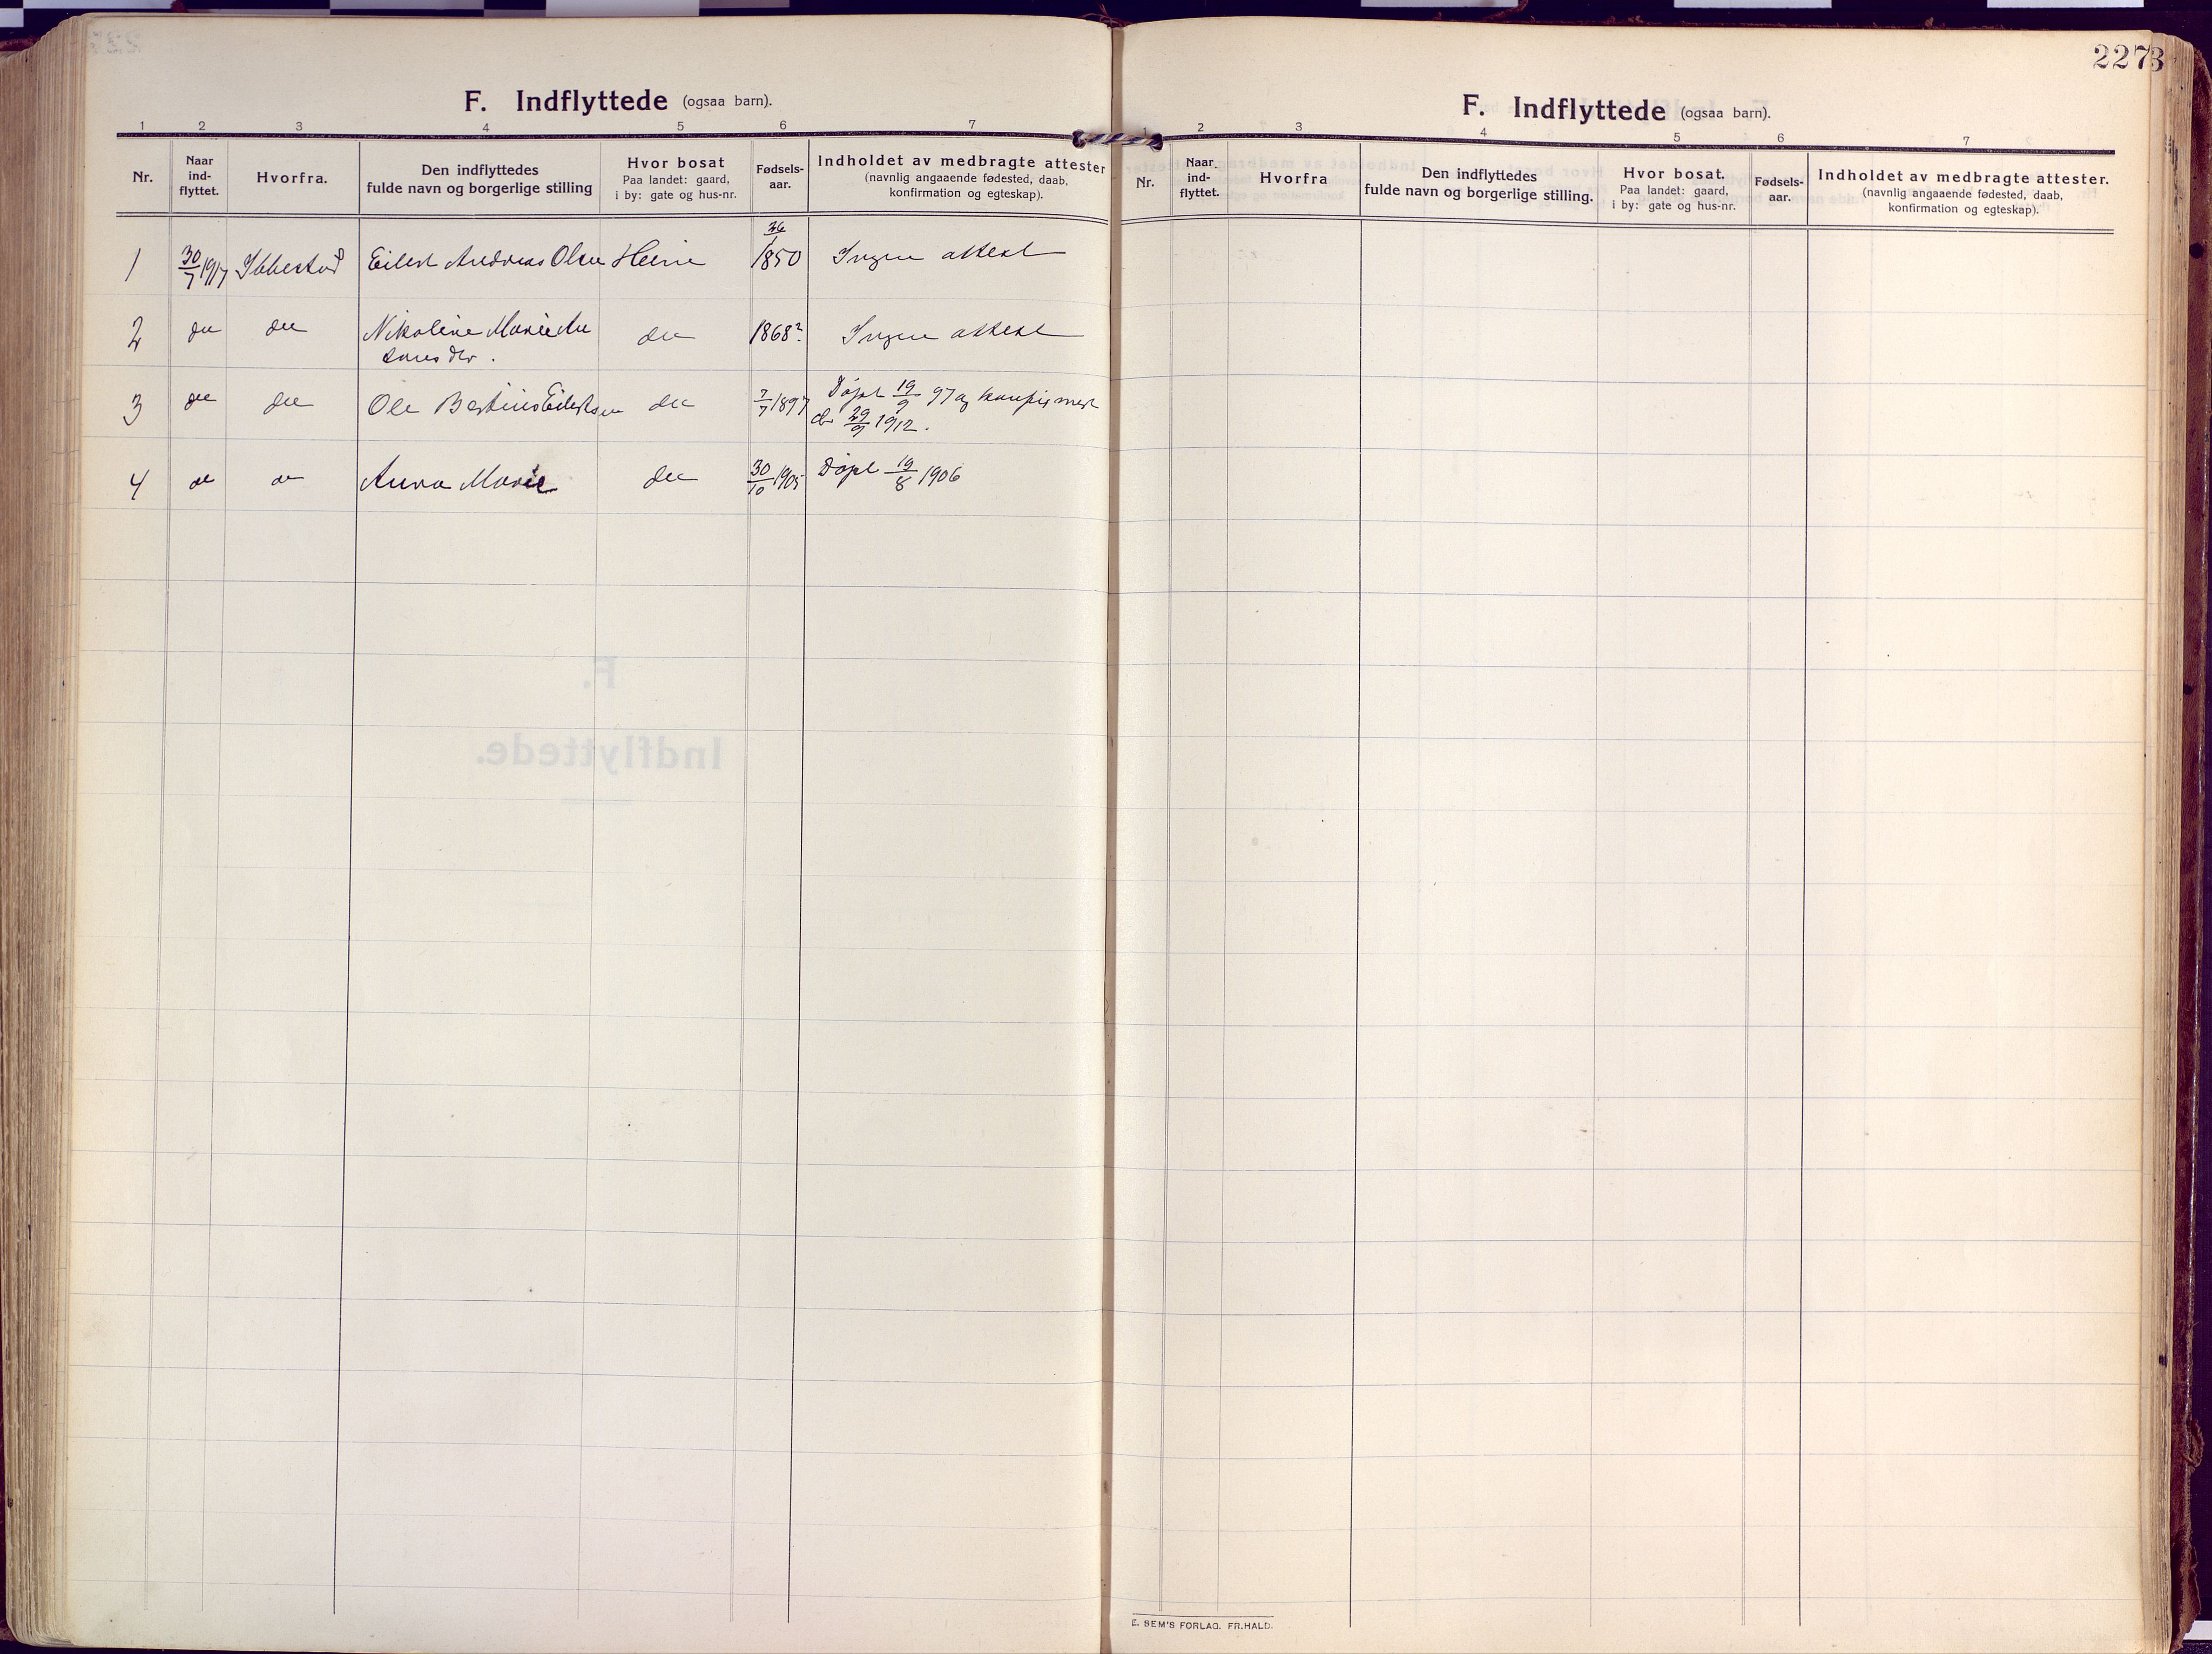 F. Indflyttede (ogsaa barn).
1 2 3 4 5 6 7
Nr. Naar ind-flyttet. Hvorfra. Den indflyttedes fulde navn og borgerlige stilling Hvor bosat Paa landet: gaard, i by: gate og hus-nr. Fødsels-aar. Indholdet av medbragte attester (navnlig angaaende fødested, daab, konfirmation og egteskap).
1 30/7 1917 Ibbestad Eilert Andreas Olsen 1850 Ingen attest
2 do do Nikoline Marie do 1868? Ingen attest
3 do do Ole Bertinus Eilertsen do 7/7 1897 Døpt 19/9 97 og konfirmert
29/9 1912.
4 do do Anna Marie do 30/10 1905 Døpt 19/8 1906
2273
F. Indflyttede (ogsaa barn).
1 2 3 4 5 6 7
Nr. Naar ind-flyttet. Hvorfra Den indflyttedes fulde navn og borgerlige stilling. Hvor bosat. Paa landet: gaard, i by: gate og hus-nr. Fødsels-aar. Indholdet av medbragte attester. (navnlig angaaende fødested, daab, konfirmation og egteskap).
E. SEM'S FORLAG. FR. HALD.